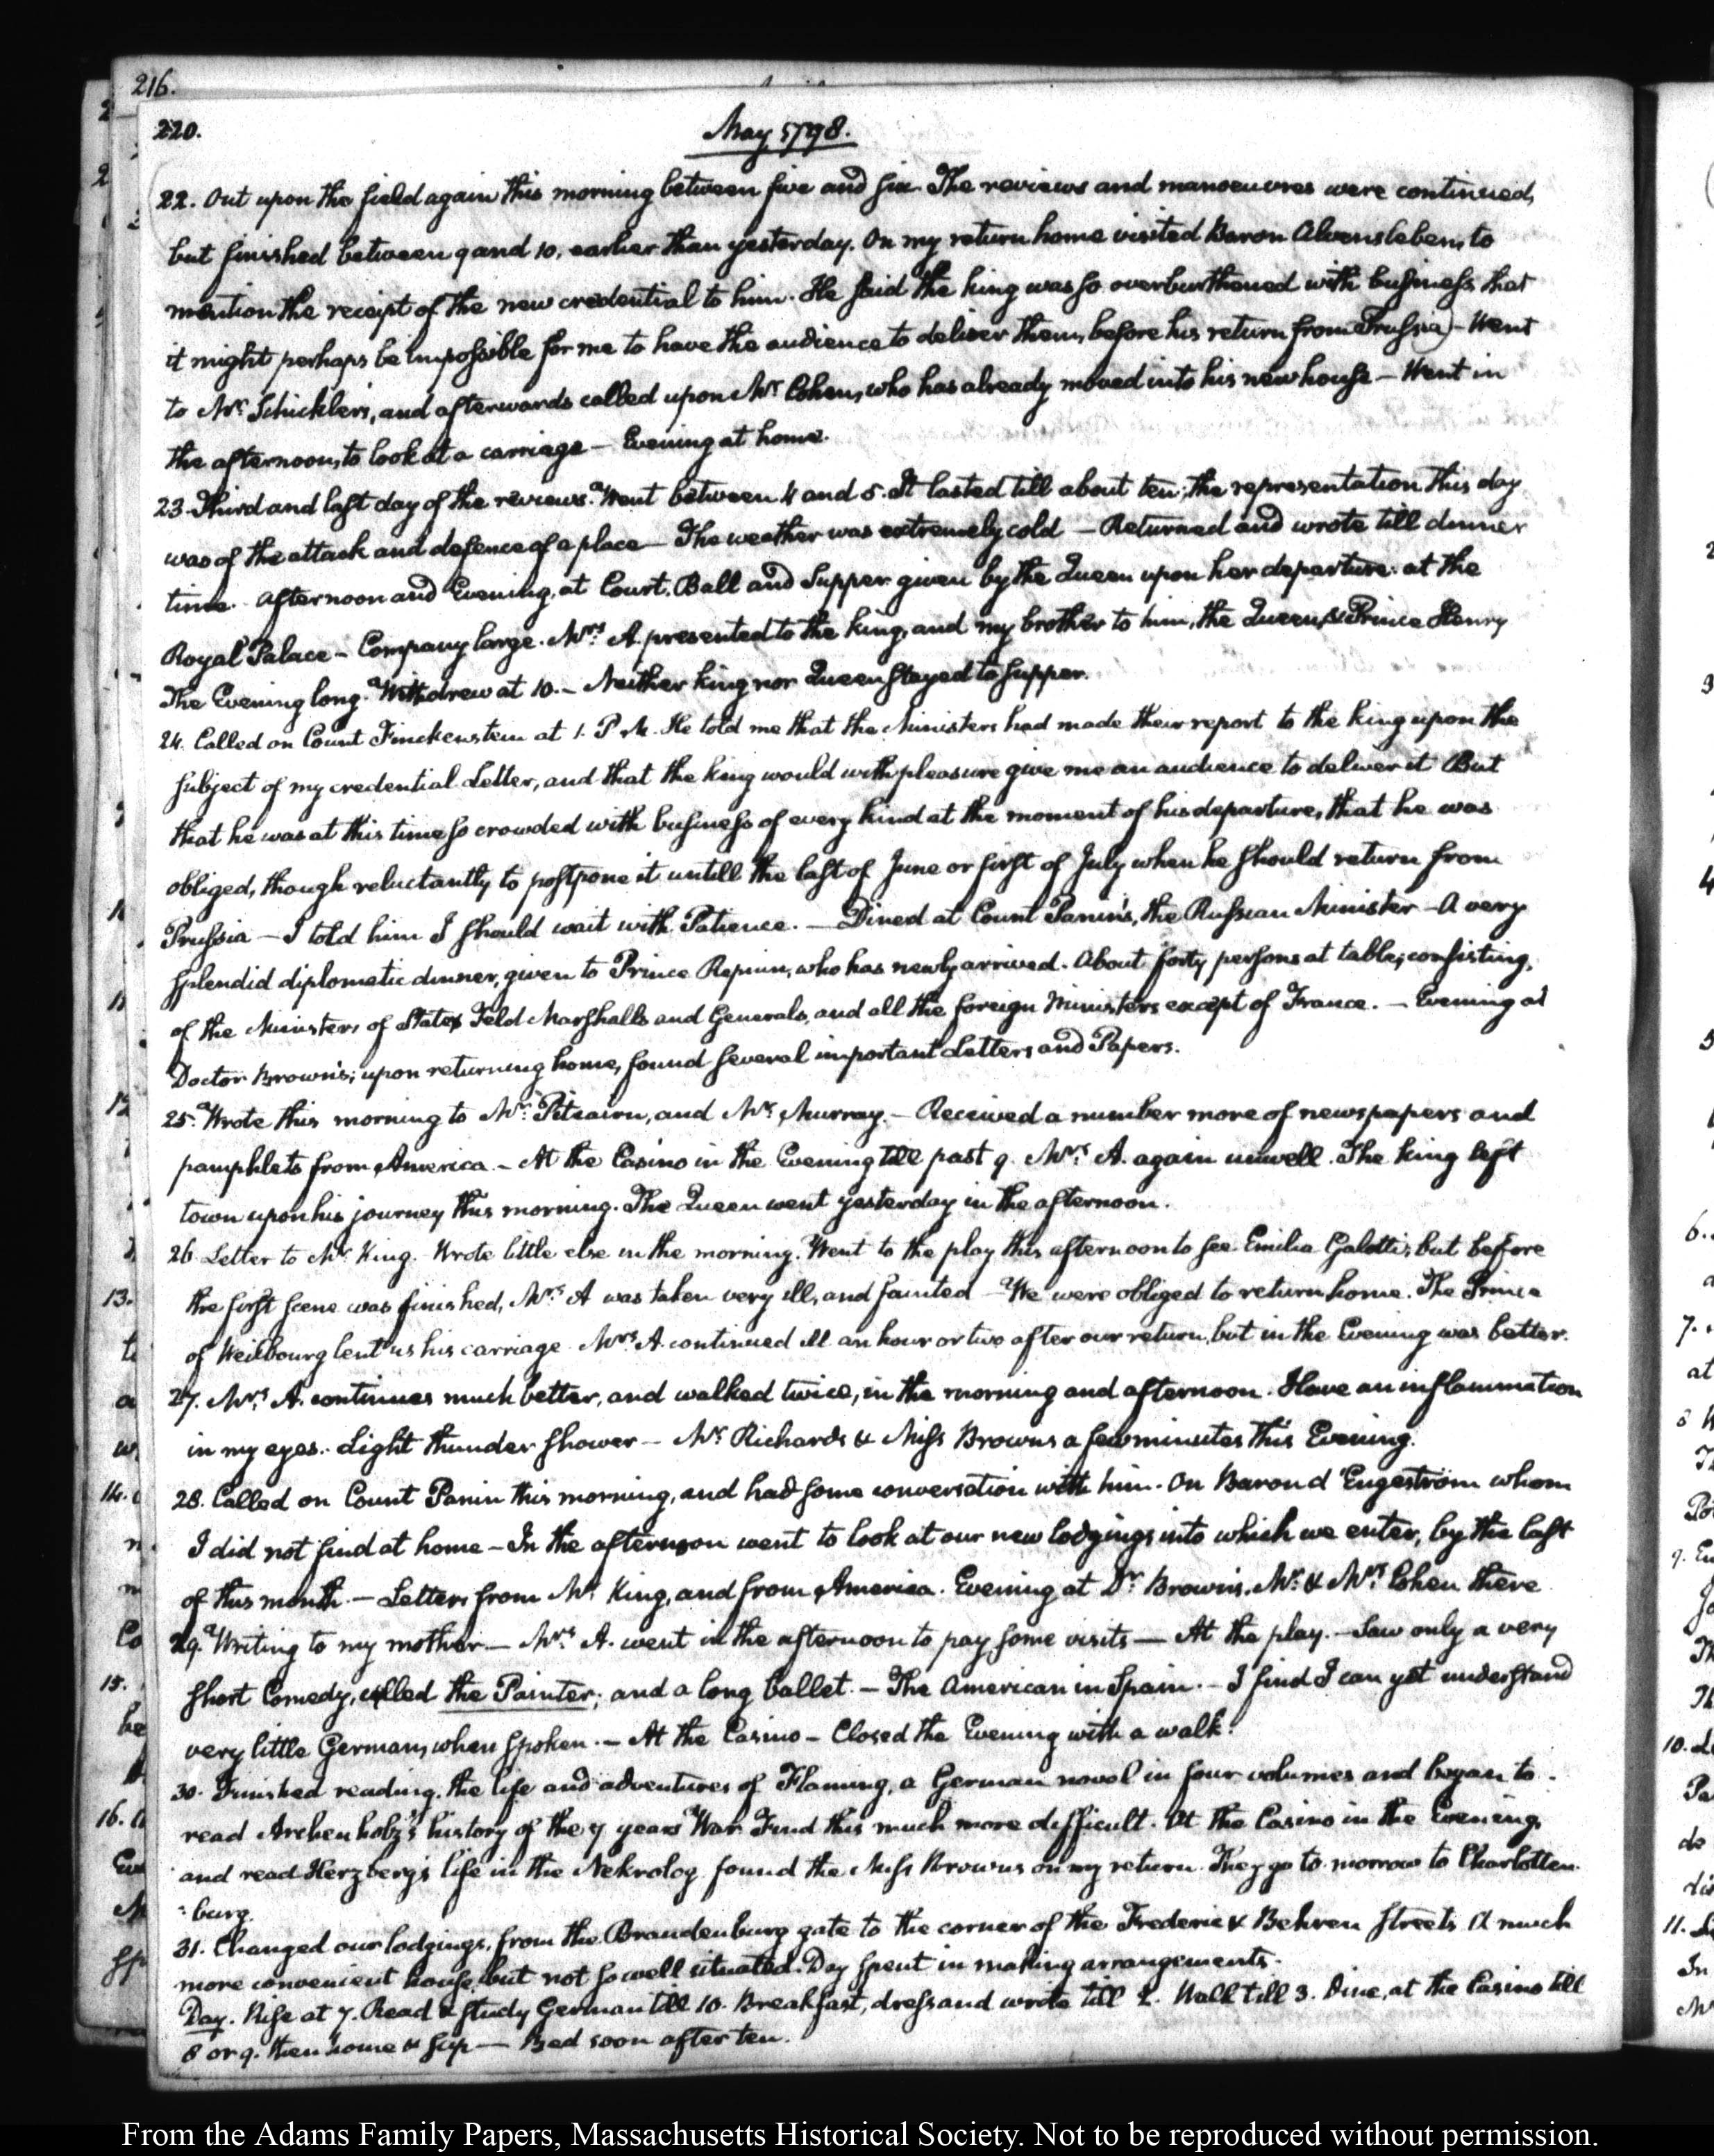 216.
220.
May, 1798.
22. Out upon the field again this morning between five and six. The reviews and manoeuvres were continued,
but finished between 9 and 10. earlier than yesterday. On my return home visited Baron Alvensleben, to
mention the receipt of the new credential to him. He said the king was so overburthened with business, that
it might perhaps be impossible for me to have the audience to deliver them, before his return from Prussia) - Went
to Mr. Schickler's, and afterwards called upon Mr. Cohen, who has already moved into his new house - Went in
the afternoon, to look at a carriage - Evening at home.
23. Third and last day of the reviews. Went between 4 and 5. It lasted till about ten; the representation this day
was of the attack and defence of a place - The weather was extremely cold - Returned and wrote till dinner
time. Afternoon and Evening, at Court. Ball and Supper given by the Queen upon her departure. at the
Royal Palace - Company large. Mrs. A. presented to the king, and my brother to him, the Queen, & Prince Henry
The Evening long. Withdrew at 10. - Neither king nor Queen stayed to supper.
24. Called on Count Finckenstein at 1. P.M. He told me that the Ministers had made their report to the king upon the
subject of my credential Letter, and that the king would with pleasure give me an audience to deliver it But
that he was at this time so crowded with business of every kind at the moment of his departure, that he was
obliged, though reluctantly to postpone it untill the last of June or first of July when he should return from
Prussia - I told him I should wait with Patience. - Dined at Count Panin's, the Russian Minister - A very
splendid diplomatic dinner, given to Prince Repnin, who has newly arrived. About forty persons at table; consisting,
of the Ministers of State, Feld Marshalls and Generals, and all the foreign Ministers except of France. - Evening at
Doctor Brown's; upon returning home, found several important Letters and Papers.
25. Wrote this morning to Mr. Pitcairn, and Mr. Murray. - Received a number more of newspapers and
pamphlets from America. - At the Casino in the Evening till past 9. Mrs. A. again unwell. The king left
town upon his journey this morning. The Queen went yesterday in the afternoon.
26. Letter to Mr. King. Wrote little else in the morning. Went to the play this afternoon to see Emilia Galotti; but before
the first scene was finished, Mrs. A was taken very ill, and fainted - We were obliged to return home. The Prince
of Weilbourg lent us his carriage Mrs. A. continued ill an hour or two after our return, but in the Evening was better.
27. Mrs. A. continues much better, and walked twice, in the morning and afternoon. Have an inflammation
in my eyes. Light thunder shower - Mr. Richards & Miss Browns a few minutes this Evening.
28. Called on Count Panin this morning, and had some conversation with him. On Baron d'Engeström whom
I did not find at home - In the afternoon went to look at our new lodgings into which we enter, by the last
of this month. - Letters from Mr. King, and from America. Evening at Dr. Brown's. Mr. & Mrs. Cohen there
29. Writing to my mother. - Mrs. A. went in the afternoon to pay some visits - At the play. - Saw only a very
short Comedy, called the Painter; and a long ballet. - The American in Spain. - I find I can yet understand
very little German, when spoken. - At the Casino - Closed the Evening with a walk.
30. Finished reading, the life and adventures of Flaming, a German novel in four volumes and began to
read Archenholz's history of the 7 years War Find this much more difficult. At the Casino in the Evening,
and read Herzberg's life in the Nekrolog. found the Miss Browns on my return. They go to morrow to Charlotten-
burg.
31. Changed our lodgings, from the Brandenburg gate to the corner of the Frederic & Behren streets A much
more convenient house, but not so well situated. Day spent in making arrangements.
Day. Rise at 7. Read & study German till 10. Breakfast, dress and write till 2. Walk till 3. Dine, at the Casino till
8 or 9. then home & sup - Bed soon after ten.
From the Adams Family Papers, Massachusetts Historical Society. Not to be reproduced without permission.